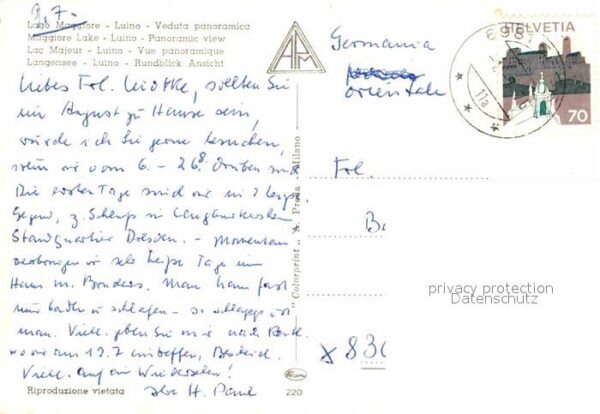 9.7.
Lago Maggiore - Luino - Veduta panoramica
Maggiore Lake - Luino - Panoramic view
Lac Majeur - Luino - Vue panoramique
Langonsee - Luino - Rundblick Ansicht
Liebes Frl. sollten Sie
im August zu Hause sein,
würde ich Sie gerne besuchen,
wenn wir vom 6. - 26.8. drüben sind
Die ersten Tage sind wir in
Gegend, z. Schlafs in
Standquartier Dresden. - Momentan
verbringen wir sehr heiße Tage im
Haus m. Bruders. Man kann fast
nur baden u schlafen - so schlapp ist
man. Viell. geben Sie mir nach
wo wir am 19.7 eintreffen, Bescheid.
Viell. auf ein Wiedersehen!
Ihr H. Paul
Riproduzione vietata
220
Colorprint „A. Preda“ Milano
APM
Germania
orientale
Frl.
B
x 830
HELVETIA
70
698
11a
privacy protection
Datenschutz